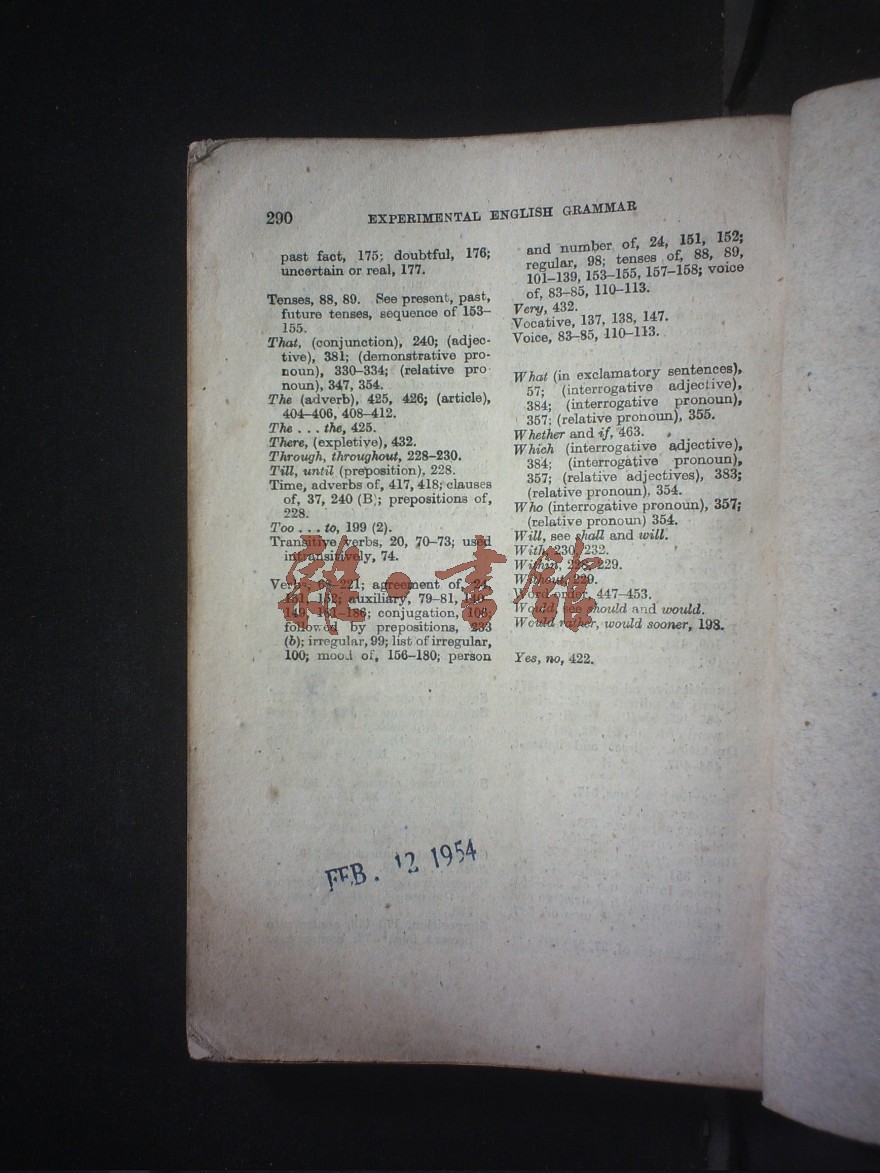 290 EXPERIMENTAL ENGLISH GRAMMAR
past fact, 175; doubtful, 176;
uncertain or real, 177.
Tenses, 88, 89. See present, past,
future tenses, sequence of 153–
155.
That, (conjunction), 240; (adjec-
tive), 381; (demonstrative pro-
noun), 330–334; (relative pro
noun), 347, 354.
The (adverb), 425, 426; (article),
404–406, 408–412.
The . . . the, 425.
There, (expletive), 432.
Through, throughout, 228–230.
Till, until (preposition), 228.
Time, adverbs of, 417, 418; clauses
of, 37, 240 (B); prepositions of,
228.
Too . . . to, 199 (2).
Transitive verbs, 20, 70–73; used
intransitively, 74.
agreement of, 24,
auxiliary, 79–81,
conjugation, 106,
followed by prepositions, 233
(b); irregular, 99; list of irregular,
100; mood of, 156–180; person
and number of, 24, 151, 152;
regular, 98; tenses of, 88, 89,
101–139, 153–155, 157–158; voice
of, 83–85, 110–113.
Very, 432.
Vocative, 137, 138, 147.
Voice, 83–85, 110–113.
What (in exclamatory sentences),
57; (interrogative adjective),
384; (interrogative pronoun),
357; (relative pronoun), 355.
Whether and if, 463.
Which (interrogative adjective),
384; (interrogative pronoun),
357; (relative adjectives), 383;
(relative pronoun), 354.
Who (interrogative pronoun), 357;
(relative pronoun) 354.
Will, see shall and will.
With, 230, 232.
Within, 229.
Without, 229.
Word order, 447–453.
Would, see should and would.
Would rather, would sooner, 198.
Yes, no, 422.
FEB. 12 1954